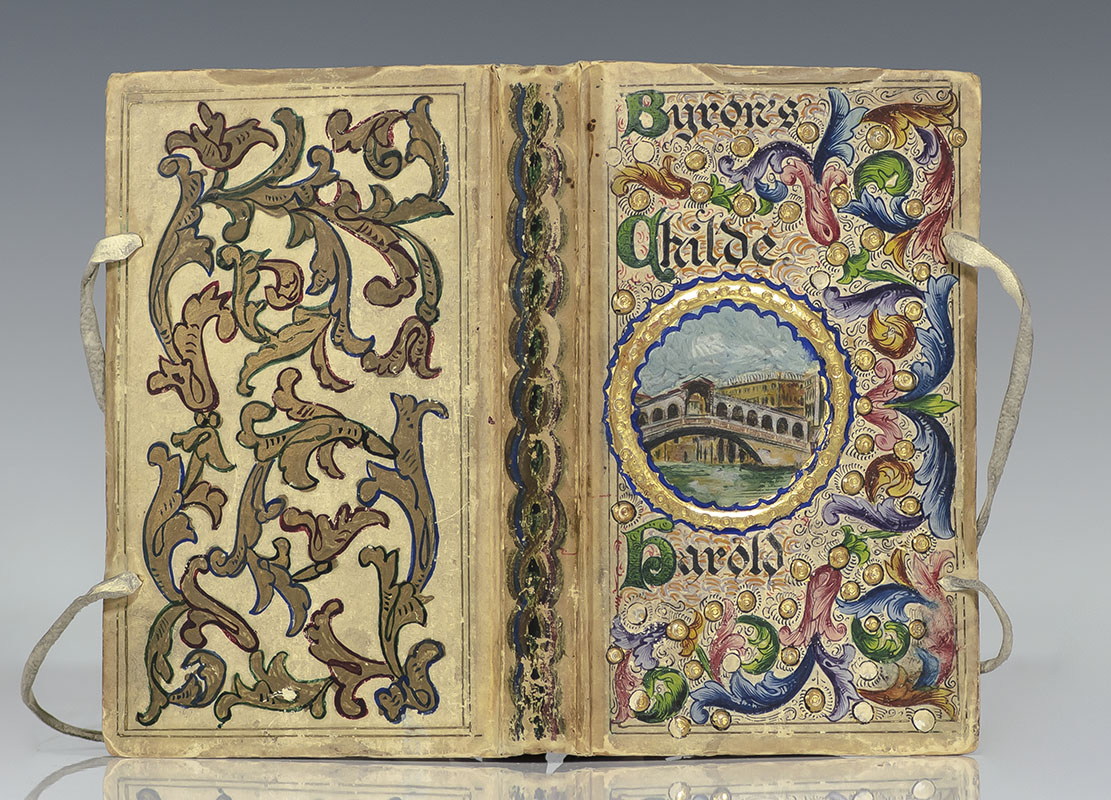 Byron's
Childe
Harold